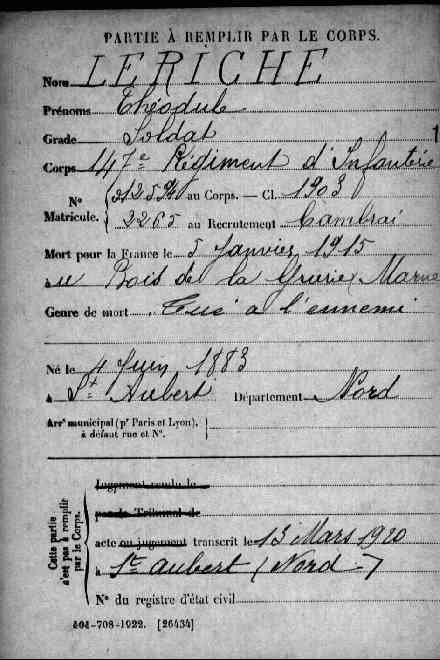 PARTIE À REMPLIR PAR LE CORPS.
Nom LERICHE
Prénoms Théodule
Grade Soldat
Corps 147e Régiment d'Infanterie
N° Matricule. au Corps. — Cl. 1903
2265 au Recrutement Cambrai
Mort pour la France le 5 Janvier 1915
à Bois de la Grurie, Marne
Genre de mort Tué à l'ennemi
Né le 4 Juin 1883
à St Aubert Département Nord
Arrt municipal (pr Paris et Lyon),
à défaut rue et N°.
Cette partie
n'est pas à remplir
par le Corps.
Jugement rendu le
par le Tribunal de
acte ou jugement transcrit le 13 Mars 1920
à St Aubert (Nord)
N° du registre d'état civil
-708-1922. [26434]